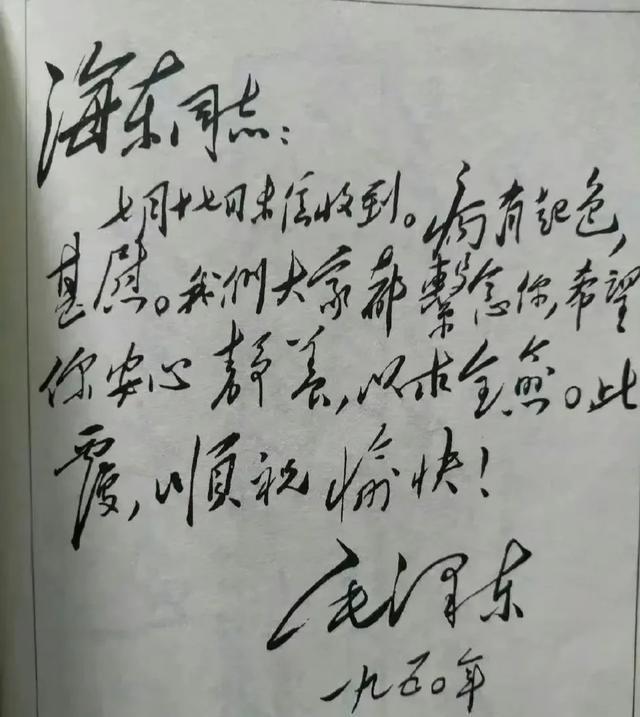 海东同志：
七月十七日来信收到。病有起色，
甚慰。我們大家都繫念你，希望
你安心静养，以求全愈。此
覆，順祝愉快！
毛泽东
一九五〇年